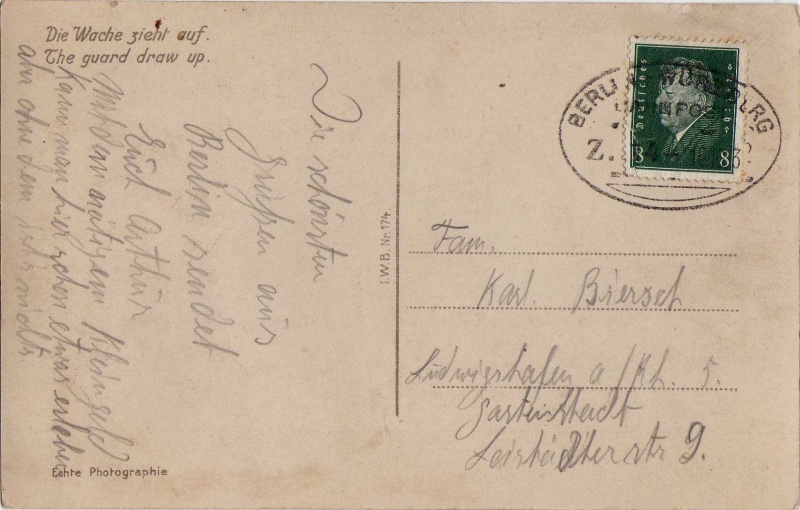 Die Wache zieht auf.
The guard draw up.
Die schönsten
Grüßen aus
Berlin sendet
Euch Arthur
Mit dem nötigem Kleingeld
kann man hier schon etwas erleben
aber ohne dem ists nichts
Echte Photographie
I.W.B. Nr. 174.
BERLIN WÜRZBURG
BAHNPOST
Z.
Deutsches Reich
8 8
Fam.
Karl. Biersch
Ludwigshafen a/Rh. 5.
Gartenstadt
Leistädterstr 9.